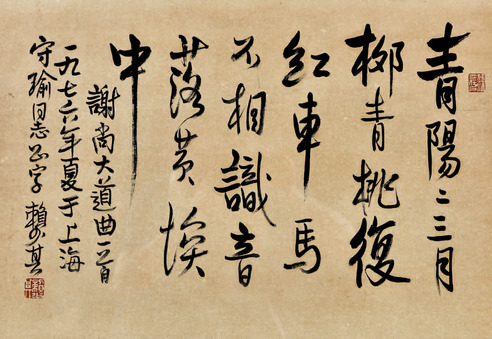 青陽二三月
柳青桃復
紅車馬
不相識音
落黃埃
中
謝尚大道曲一首
一九七六年夏于上海
守瑜同志 字 賴少其